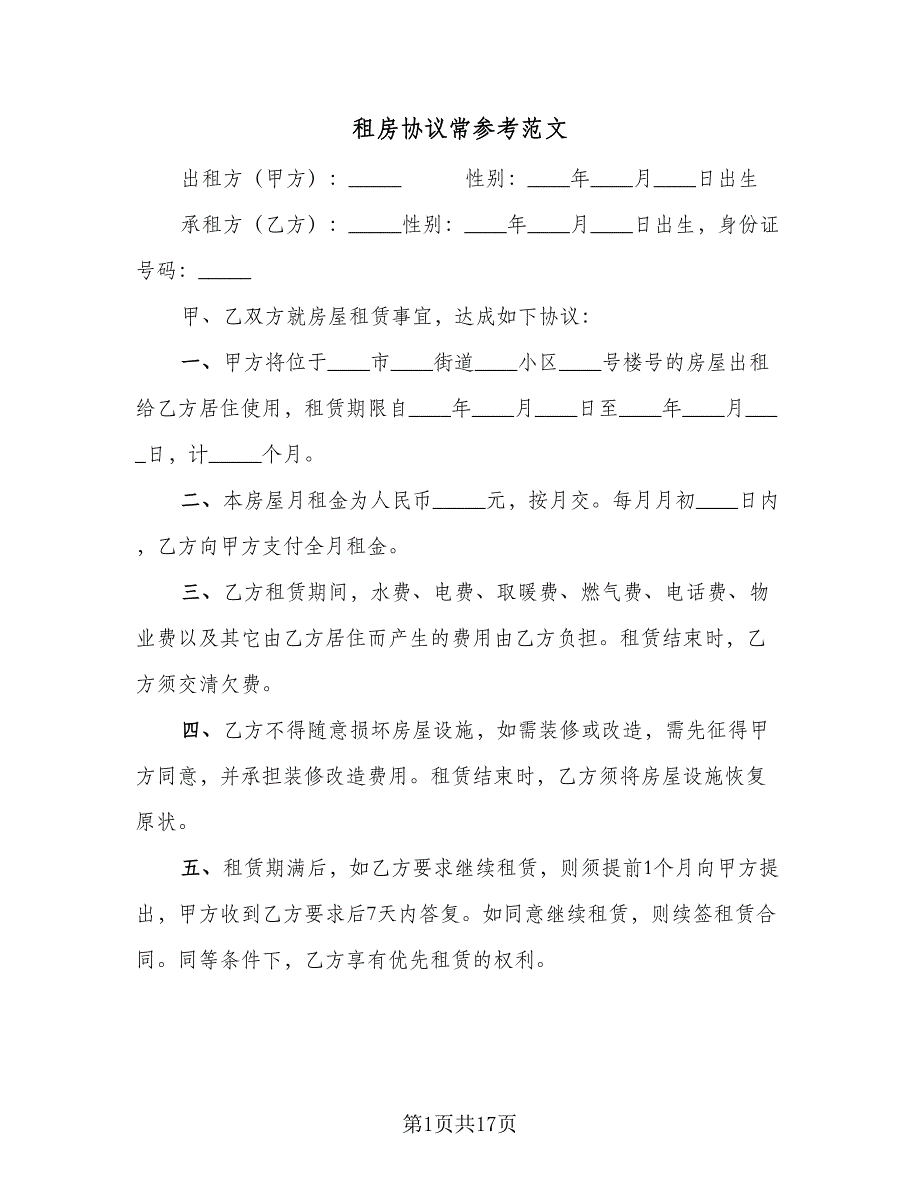 租房协议常参考范文
出租方（甲方）：_____ 性别：____年____月____日出生
承租方（乙方）：_____性别：____年____月____日出生，身份证
号码：_____
甲、乙双方就房屋租赁事宜，达成如下协议：
一、甲方将位于____市____街道____小区____号楼号的房屋出租
给乙方居住使用，租赁期限自____年____月____日至____年____月___
_日，计_____个月。
二、本房屋月租金为人民币_____元，按月交。每月月初____日内
，乙方向甲方支付全月租金。
三、乙方租赁期间，水费、电费、取暖费、燃气费、电话费、物
业费以及其它由乙方居住而产生的费用由乙方负担。租赁结束时，乙
方须交清欠费。
四、乙方不得随意损坏房屋设施，如需装修或改造，需先征得甲
方同意，并承担装修改造费用。租赁结束时，乙方须将房屋设施恢复
原状。
五、租赁期满后，如乙方要求继续租赁，则须提前1个月向甲方提
出，甲方收到乙方要求后7天内答复。如同意继续租赁，则续签租赁合
同。同等条件下，乙方享有优先租赁的权利。
第1页共17页